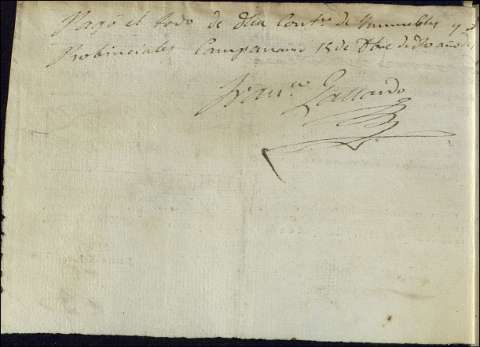 Pagó el todo de dha Contn. de Inmuebles y
Probinciales Campanario 15 de Dbre de
Franco. Gallardo